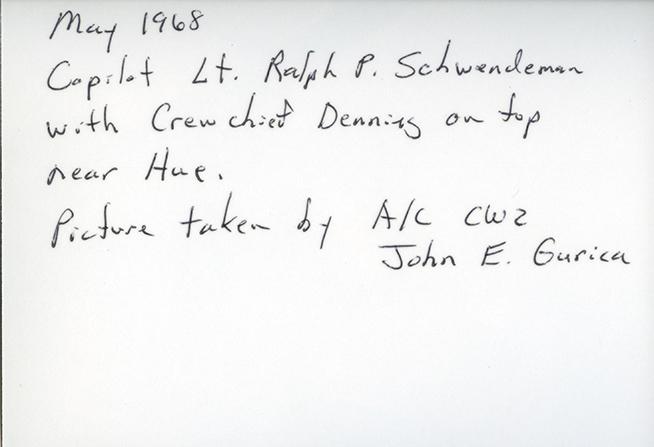 May 1968
Copilot Lt. Ralph P. Schwendeman
with Crewchief Denning on top
near Hue.
Picture taken by A/C CW2
John E. Gurica